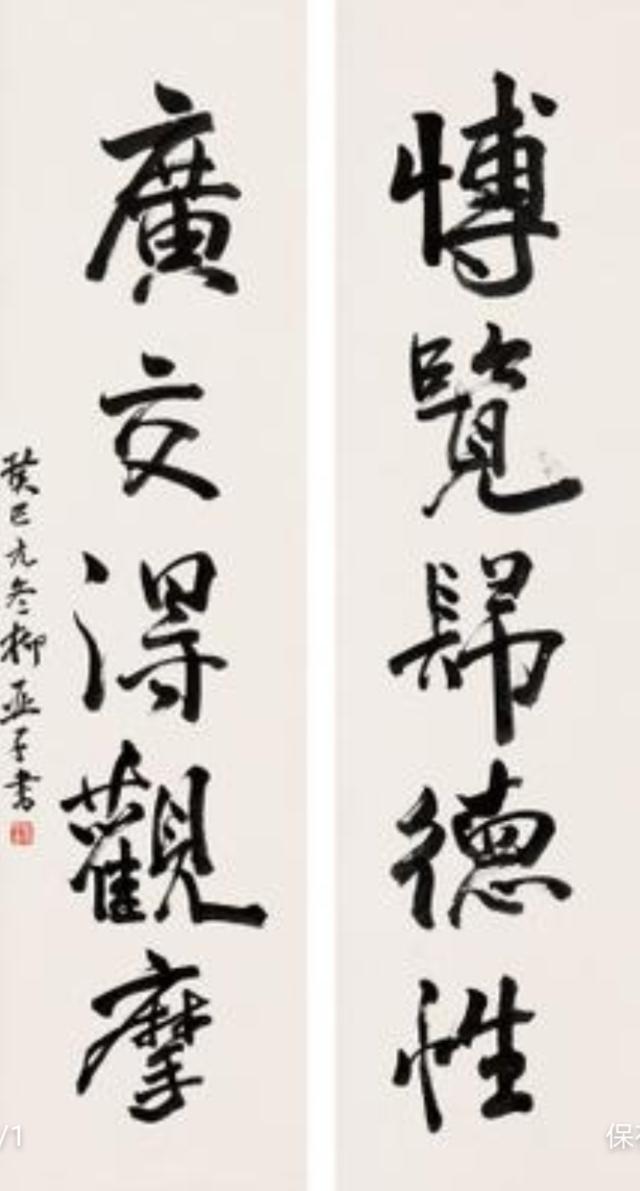 博覽歸德性
廣交得觀摩
癸巳冬柳亞子書
/1
保